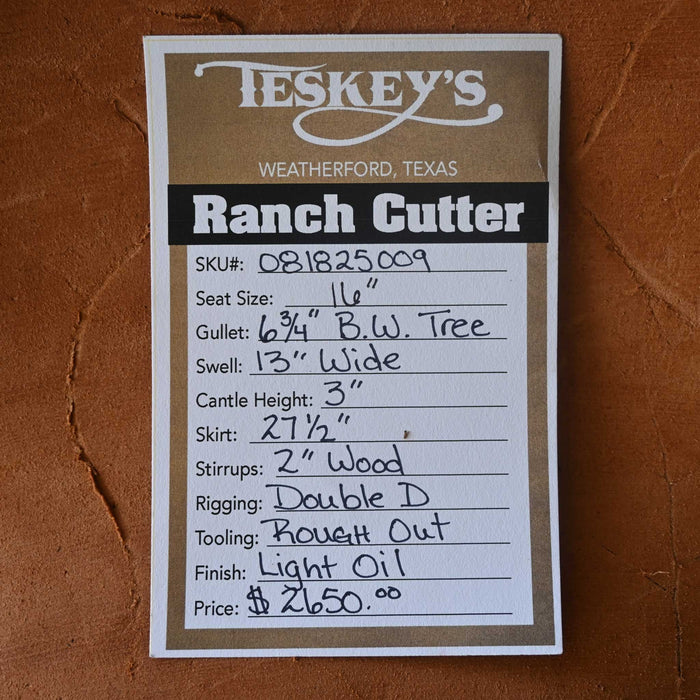 TESKEY'S
WEATHERFORD, TEXAS
Ranch Cutter
SKU#: 081825009
Seat Size: 16"
Gullet: 6 3/4" B.W. Tree
Swell: 13" Wide
Cantle Height: 3"
Skirt: 27 1/2"
Stirrups: 2" Wood
Rigging: Double D
Tooling: Rough Out
Finish: Light Oil
Price: $ 2650.00